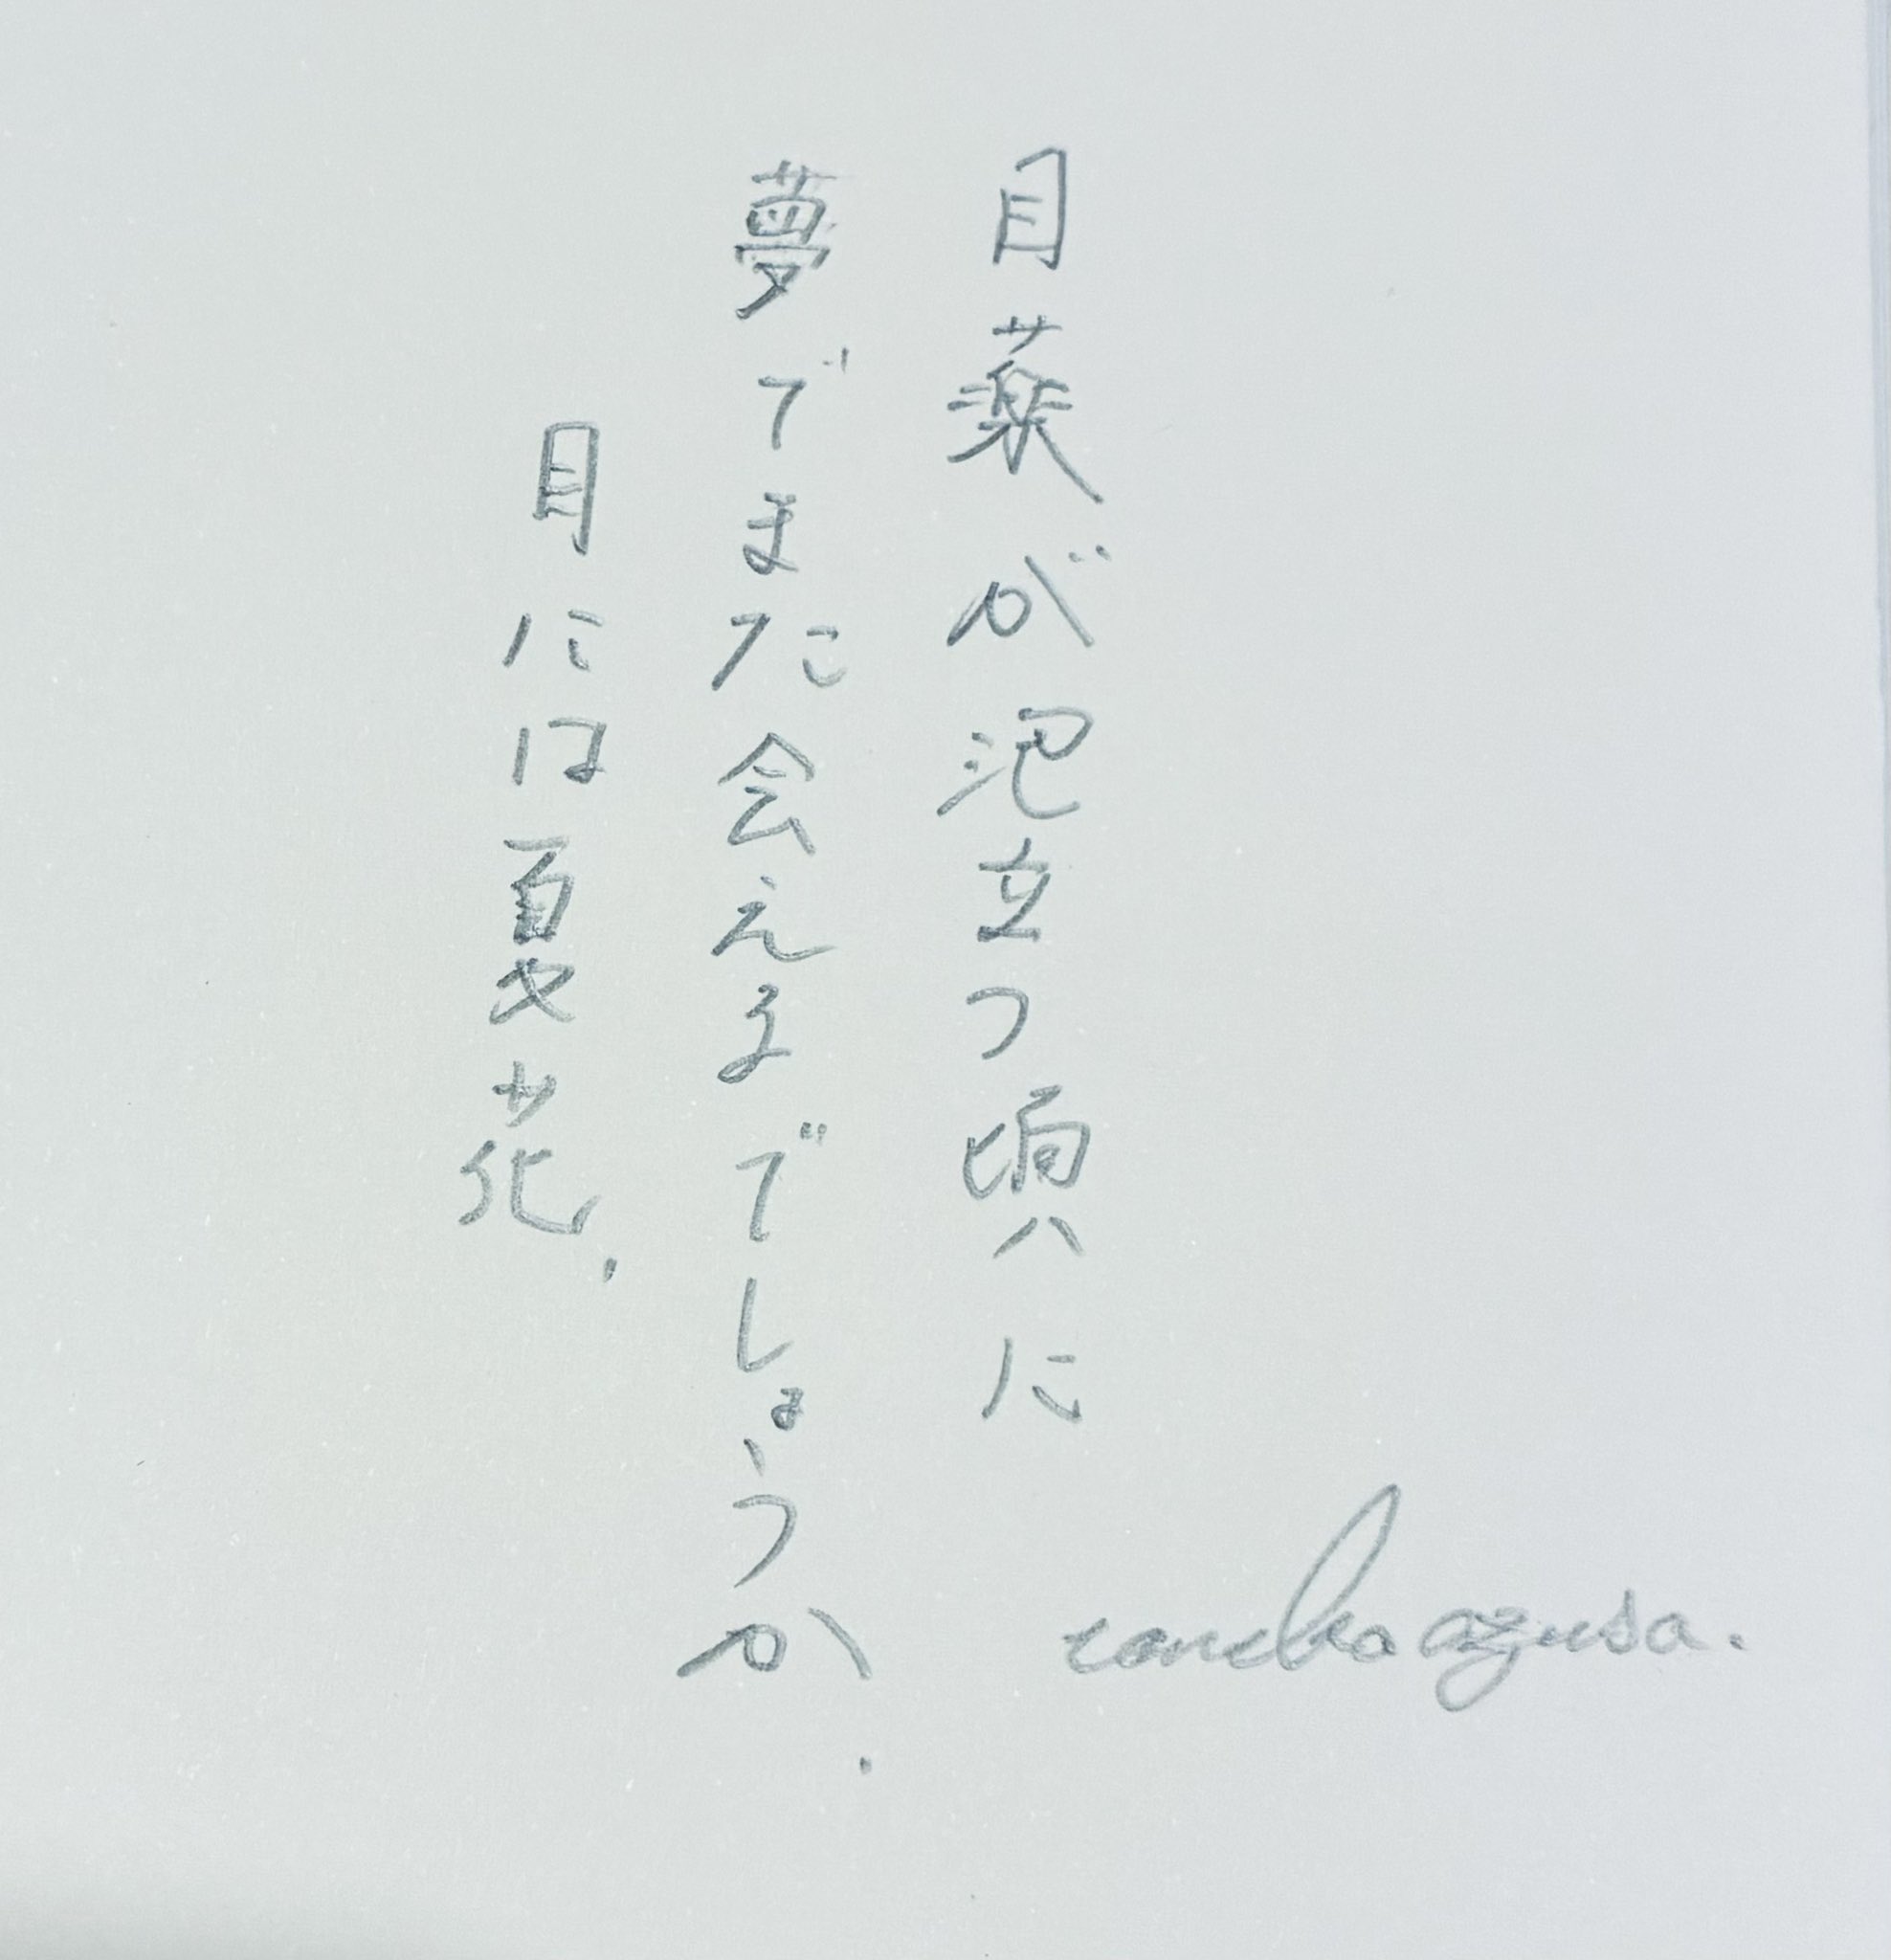 目薬が泡立つ頃に
夢でまた会えるでしょうか.
目には夏や花.
azusa.